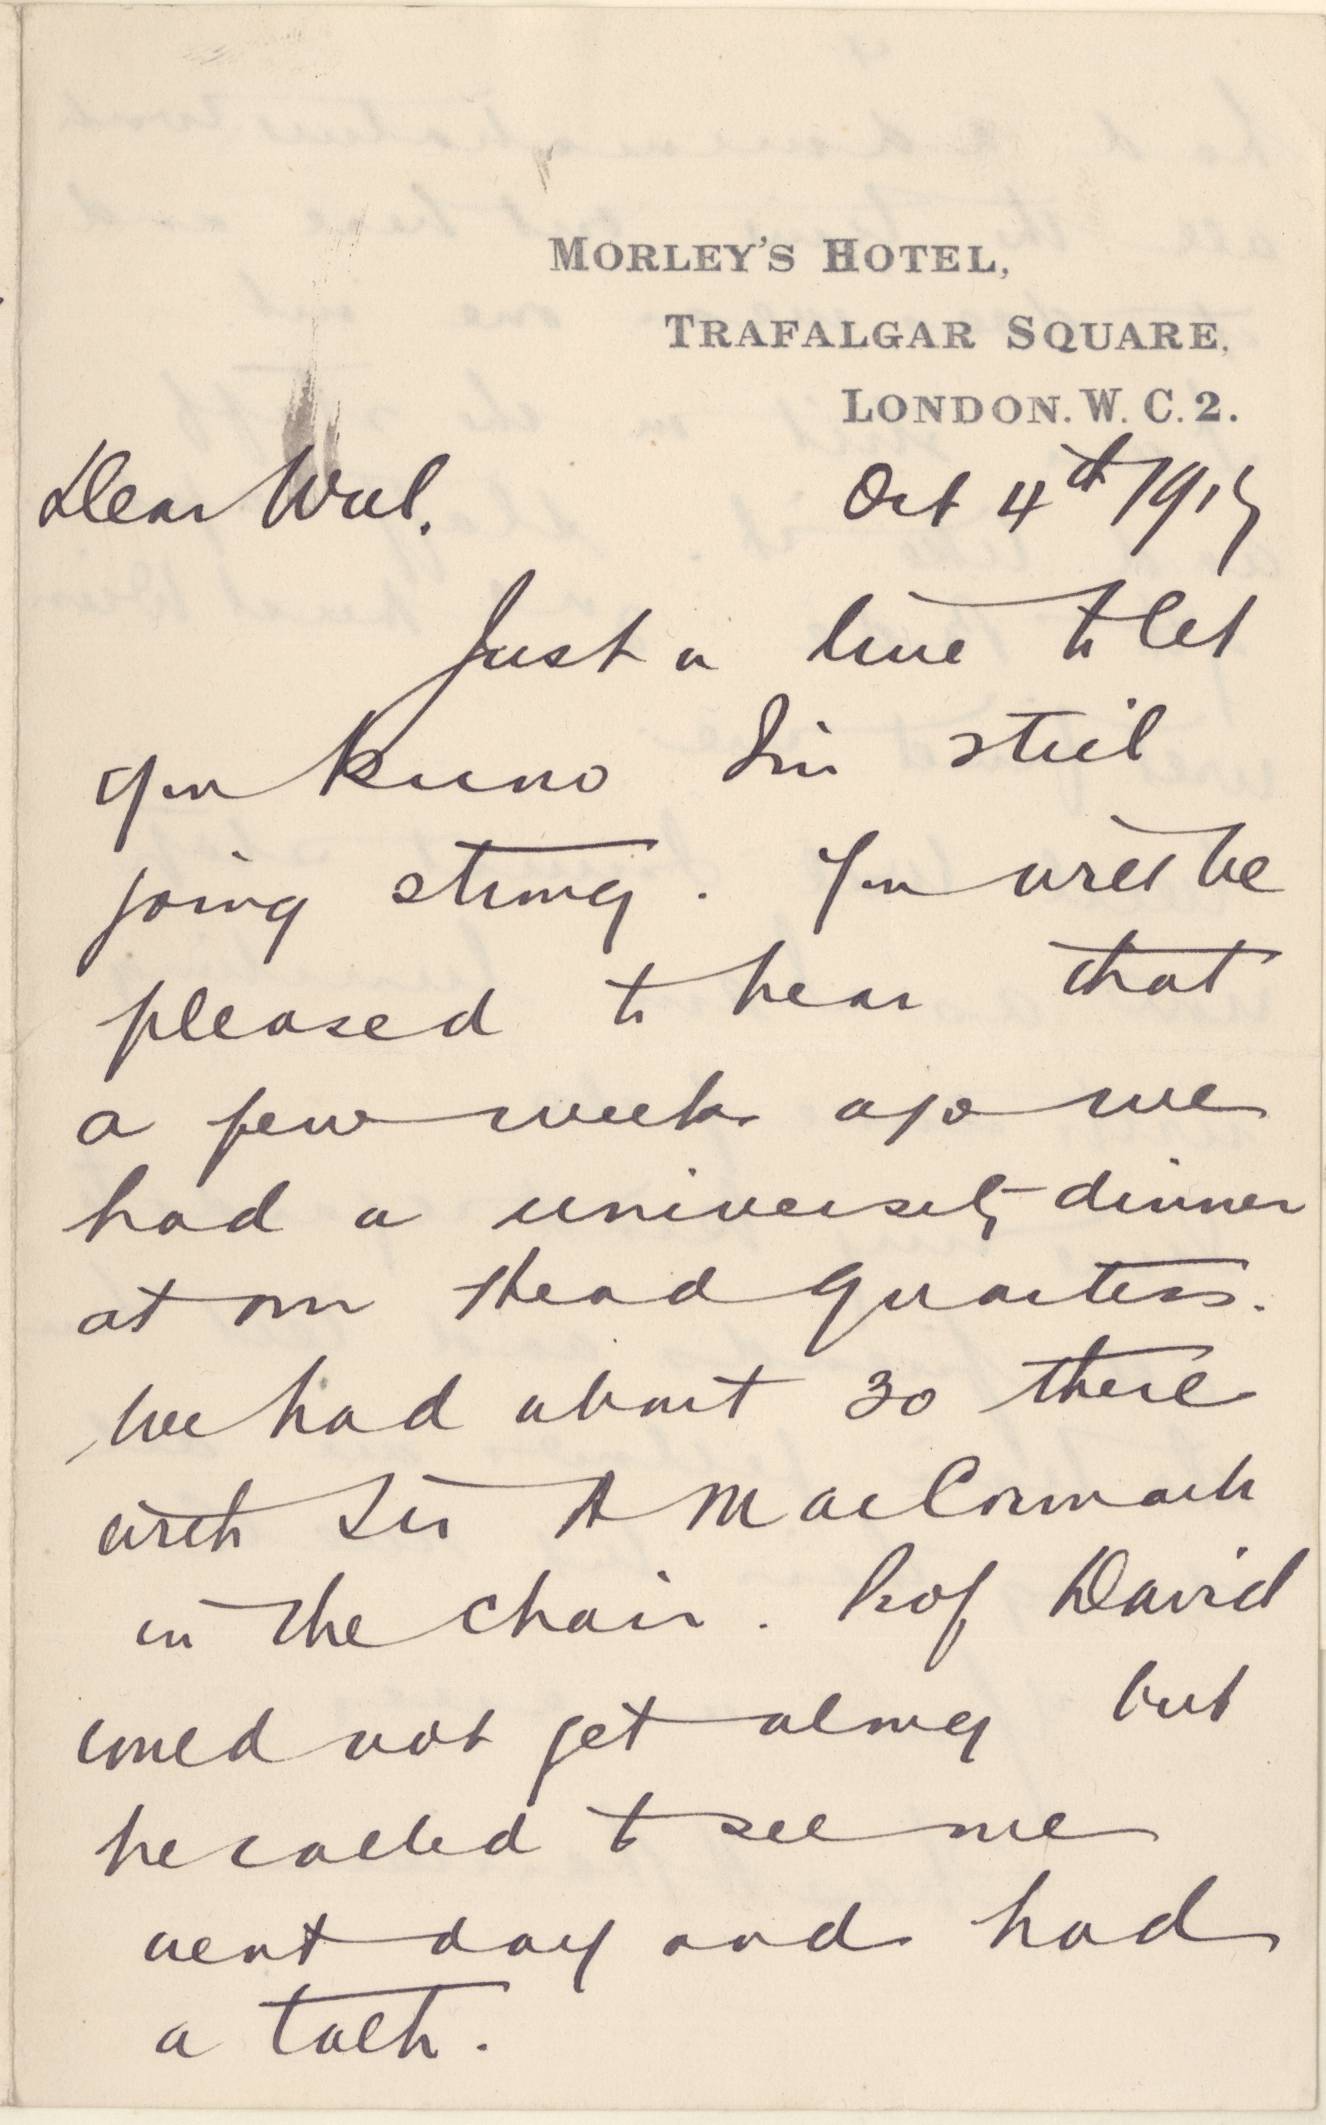 MORLEY'S HOTEL,
TRAFALGAR SQUARE,
LONDON. W. C. 2.
Dear Will. Oct 4th 1917
Just a line to let
you know I'm still
going strong. You will be
pleased to hear that
a few weeks ago we
had a university dinner
at our Head Quarters.
We had about 30 there
with Sir A MacCormack
in the chair. Prof David
could not get along but
he called to see me
next day and had
a talk.